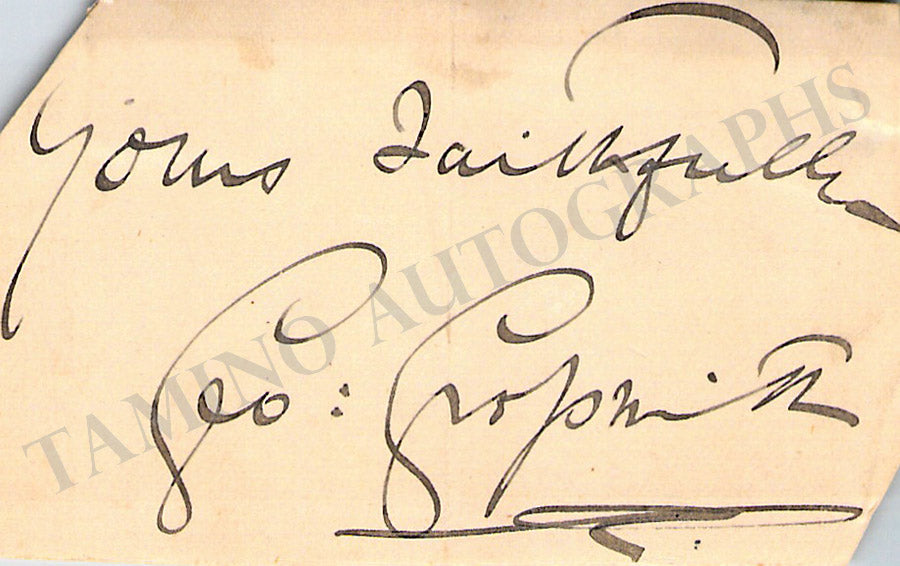 Yours Faithfully
Geo: Grossmith
TAMINO AUTOGRAPHS